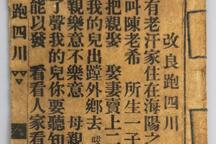 改良跑四川
有老汗家住在海陽之
叫陳老希 所生一子
把親娶 娶妻賣上二
我的兒出蹚外鄉去
親樂意不樂意 母親
了聲我的兒你要聽知
能以發 看看人家看
跑四川